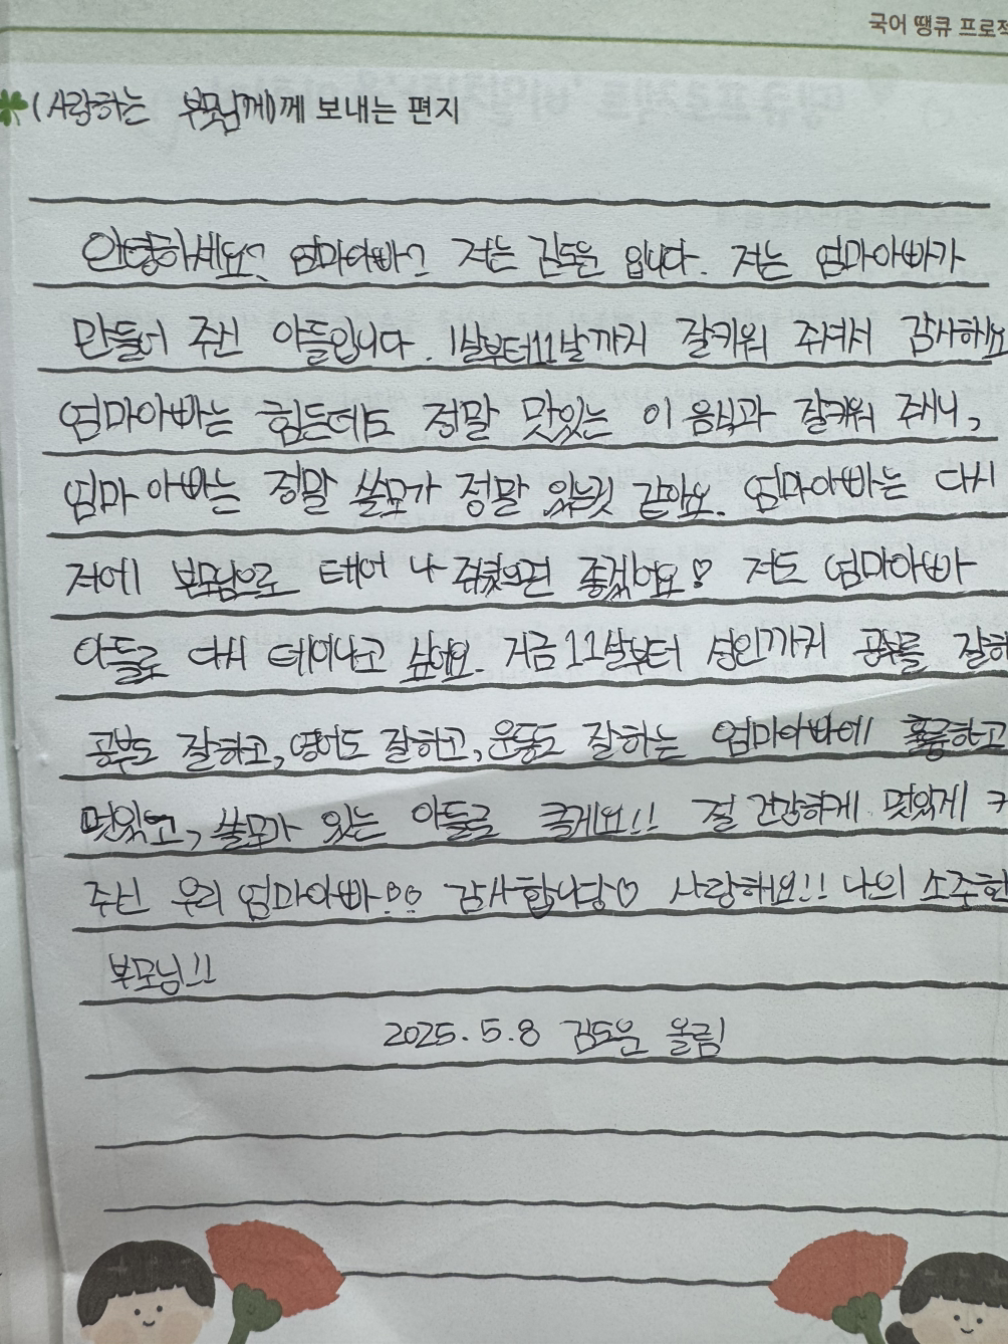 국어 땡큐 프로젝
(사랑하는 부모님께)께 보내는 편지
안녕하세요? 엄마아빠? 저는 김도운 입니다. 저는 엄마아빠가
만들어 주신 아들입니다. 1살부터11살까지 잘키워 주셔서 감사해요
엄마아빠는 힘든데도 정말 맛있는 이 음식과 잘키워 주니,
엄마 아빠는 정말 쓸모가 정말 있는것 같아요. 엄마아빠는 다시
저에 부모님으로 테어 나 줬으면 좋겠어요♡ 저도 엄마아빠
아들로 다시 테어나고 싶어요. 지금11살부터 성인까지 공부를 잘하
공부도 잘하고, 영어도 잘하고, 운동도 잘하는 엄마아빠에 훌륭하고
멋있고, 쓸모가 있는 아들로 클게요!! 절 건강하게 멋있게 키
주신 우리 엄마아빠♡♡ 감사합니당♡ 사랑해요!! 나의 소중한
부모님!!
2025.5.8 김도운 올림!